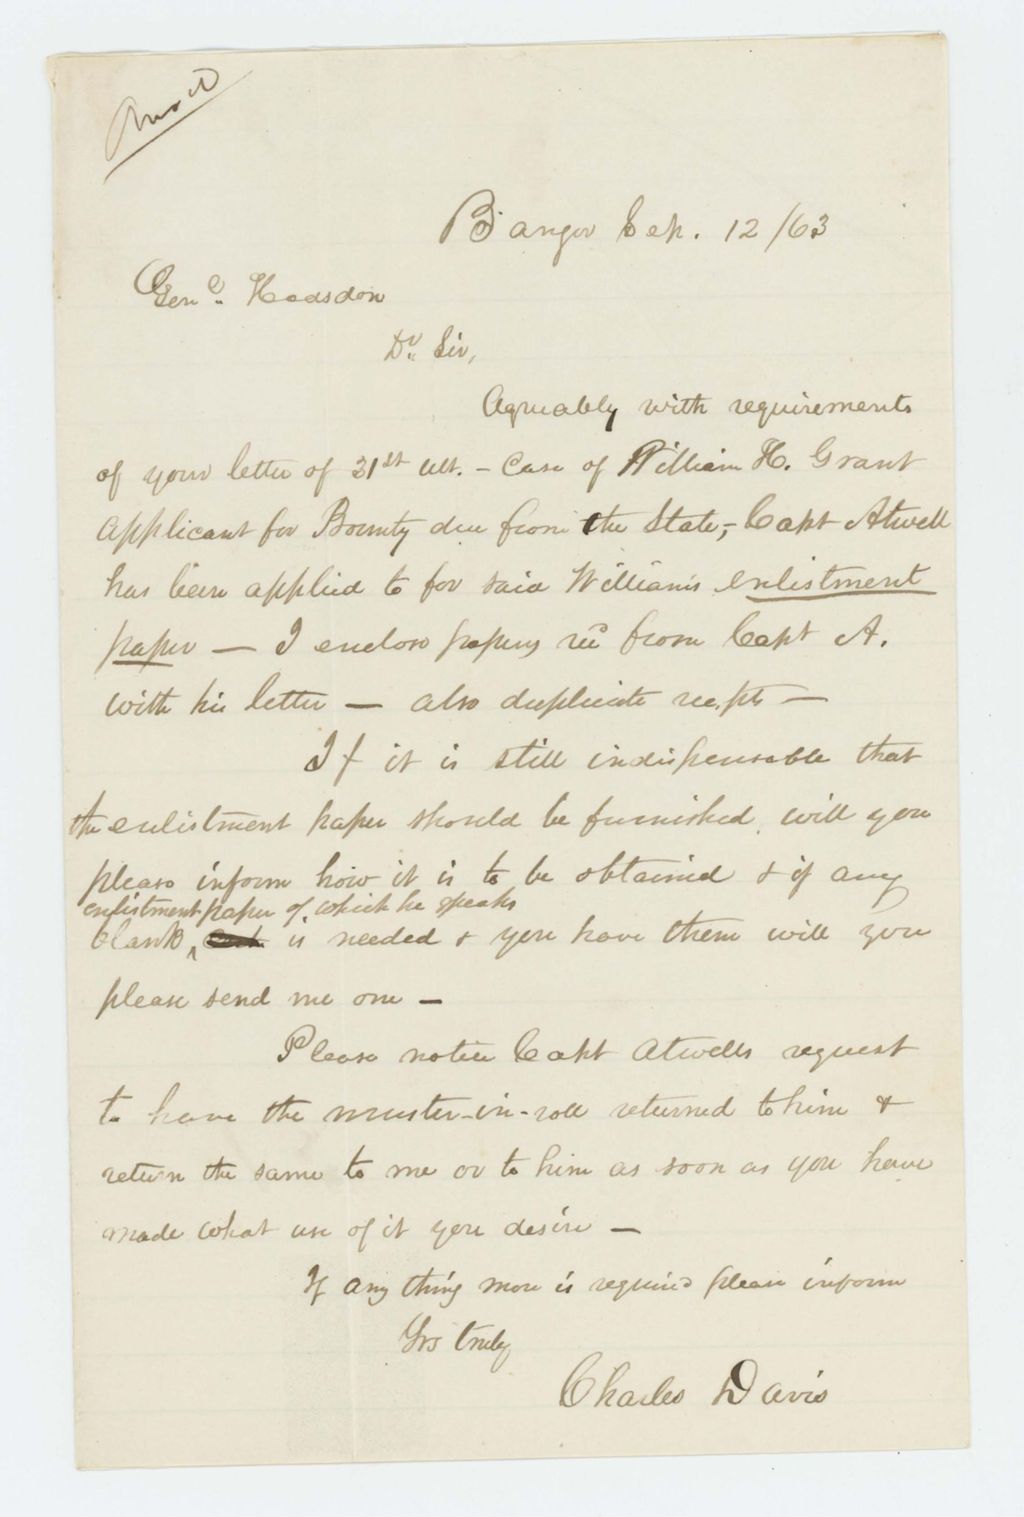 Ansd
Bangor Sep. 12/63
Genl. Hodsdon
Dr. Sir,
Agreeably with requirements
of your letter of 31st ult. - Case of William H. Grant
applicant for Bounty due from the State, - Capt Atwell
has been applied to for said William's enlistment
paper — I enclose papers recd from Capt A.
with his letter — also duplicate recpts —
If it is still indispensable that
the enlistment paper should be furnished, will you
please inform how it is to be obtained & if any
enlistment paper of which he speaks
blank, is needed & you have them will you
please send me one —
Please notice Capt Atwells request
to have the muster-in-roll returned to him &
return the same to me or to him as soon as you have
made what use of it you desire —
If any thing more is required please inform
Yrs truly
Charles Davis